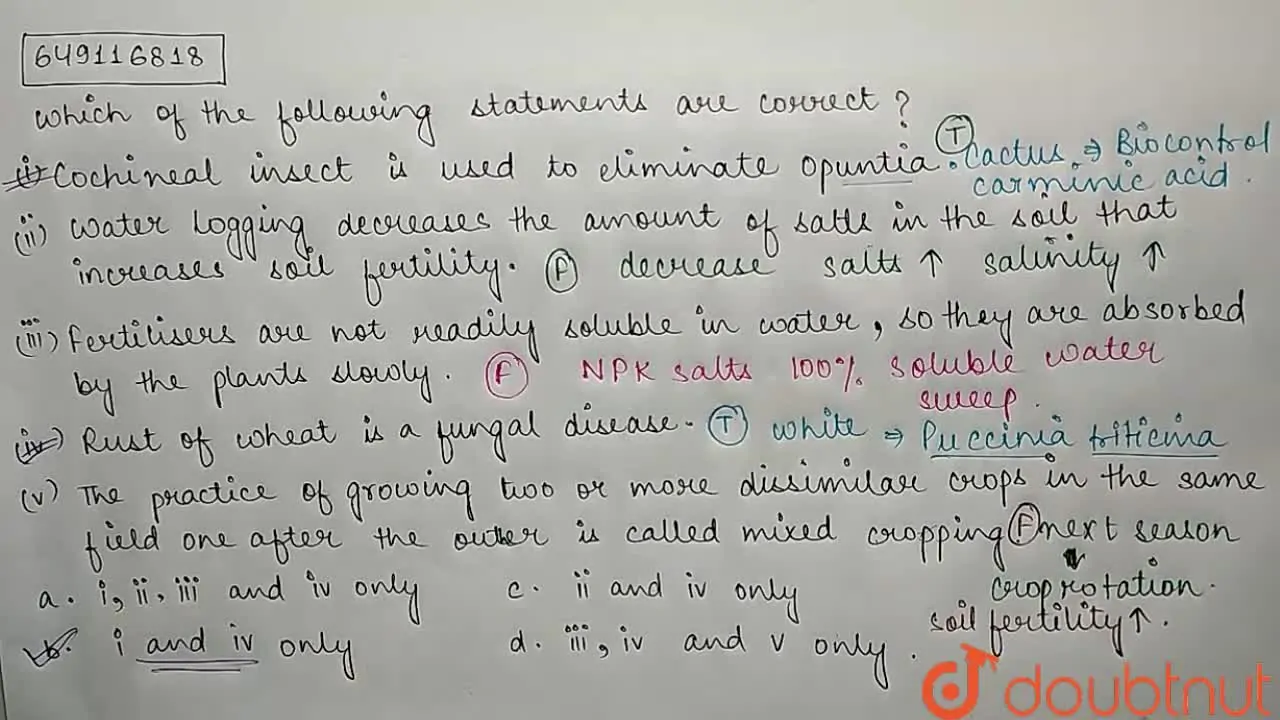 649116818
which of the following statements are correct ?
(i) Cochineal insect is used to eliminate Opuntia. (T) Cactus. ⇒ Biocontrol
carminic acid.
(ii) Water logging decreases the amount of salts in the soil that
increases soil fertility. (F) decrease salts ↑ salinity ↑
(iii) Fertilisers are not readily soluble in water, so they are absorbed
by the plants slowly. (F) NPK salts 100% soluble water
sweep.
(iv) Rust of wheat is a fungal disease. (T) white ⇒ Puccinia triticina
(v) The practice of growing two or more dissimilar crops in the same
field one after the outher is called mixed cropping (F) next season
crop rotation.
a. i, ii, iii and iv only c. ii and iv only
soil fertility ↑.
b. i and iv only d. iii, iv and v only.
doubtnut